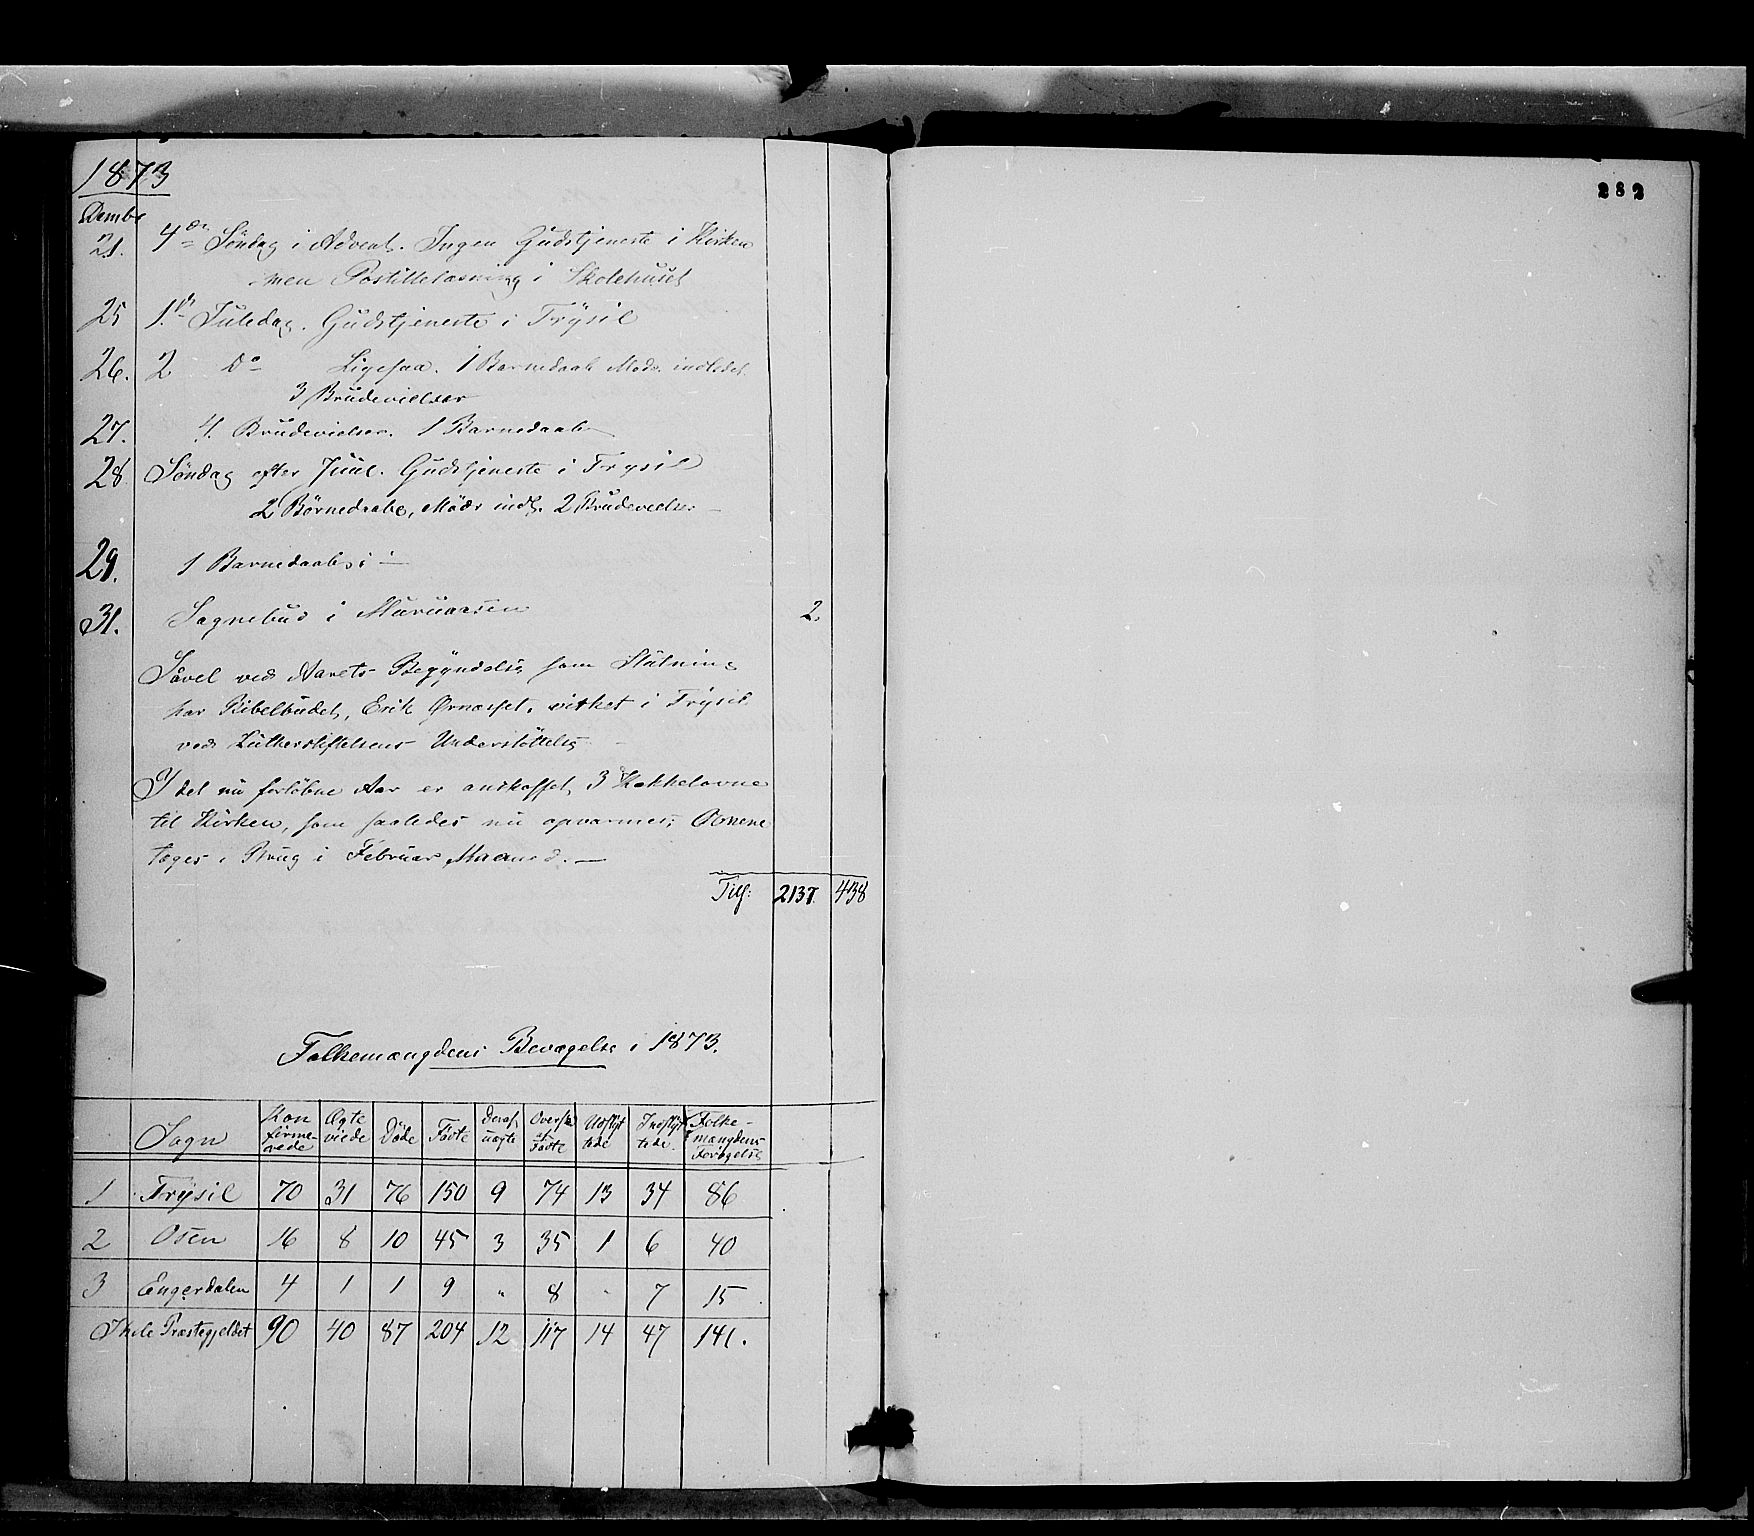 1873
Decmbr
21. 4de Søndag i Advent. Ingen Gudstjeneste i Kirken
men Postillelæsning i Skolehuset
25 1ste Juledag. Gudstjeneste i Trysil
26. 2 Do Ligesaa. 1 Barnedaab Modr. indledet.
3 Brudevielser
27. 4. Brudevielser. 1 Barnedaab
28 Søndag efter Juul. Gudstjeneste i Trysil
2 Børnedaabe, Mødr indl. 2 Brudevielser
29. 1 Barnedaab
31. Sognebud i 2.
Såvel ved Aarets Begyndelse som Slutning
har Bibelbudet, Erik Ørnæsset, virket i Trysil
ved Lutherstiftelsens Understøttelse
I det nu forløbne Aar er anskaffet 3 Kakkelovne
til Kirken, som saaledes nu opvarmes; Ovnene
toges i Brug i Februar Maaned. —
Tils: 2137. 438
Folkemængdens Bevægelse i 1873.
Sogn Konfirmerede Ægteviede Døde Fødte Deraf uægte Oversk. af Fødte Udflyttede Indflyttede Folkemængdens Forøgelse
1 Trysil 70 31 76 150 9 74 13 34 86
2 Osen 16 8 10 45 3 35 1 6 40
3 Engerdalen 4 1 1 9 " 8 " 7 15
I hele Præstegjeldet 90 40 87 204 12 117 14 47 141.
282